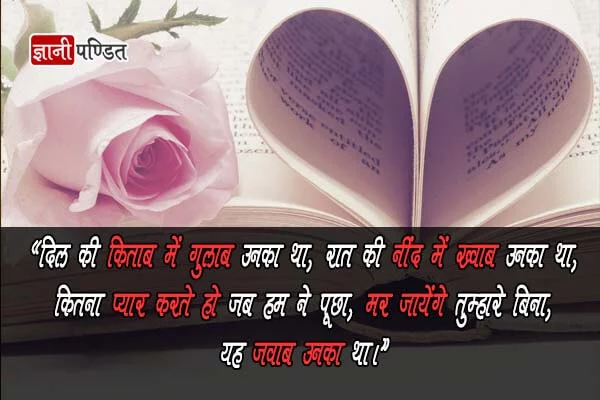 ज्ञानी पण्डित
“दिल की किताब में गुलाब उनका था, रात की नींद में ख्वाब उनका था,
कितना प्यार करते हो जब हम ने पूछा, मर जायेंगे तुम्हारे बिना,
यह जवाब उनका था।”